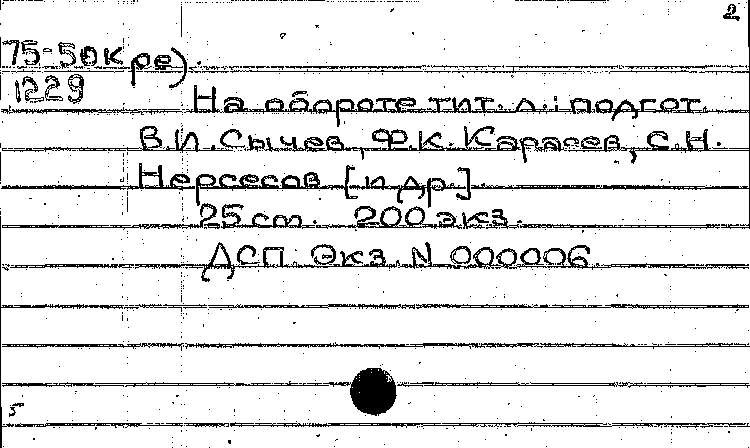 2
75-50 кре).
1229
На обороте тит. л.: подгот.
В.И. Сычев, Ф.К. Карасев, С.Н.
Нерсесов [и др.].
25 cm. 200 экз.
ДСП. Экз. N 000006.
5